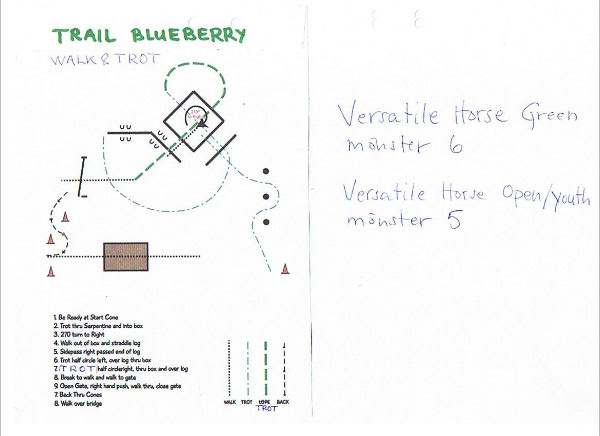 TRAIL BLUEBERRY
WALK & TROT
1. Be Ready at Start Cone
2. Trot thru Serpentine and into box
3. 270 turn to Right
4. Walk out of box and straddle log
5. Sidepass right passed end of log
6. Trot half circle left, over log thru box
7. TROT half circleright, thru box and over log
8. Break to walk and walk to gate
9. Open Gate, right hand push, walk thru, close gate
7. Back Thru Cones
8. Walk over bridge
WALK TROT LOPE BACK
TROT
Versatile Horse Green
mönster 6
Versatile Horse Open/youth
mönster 5